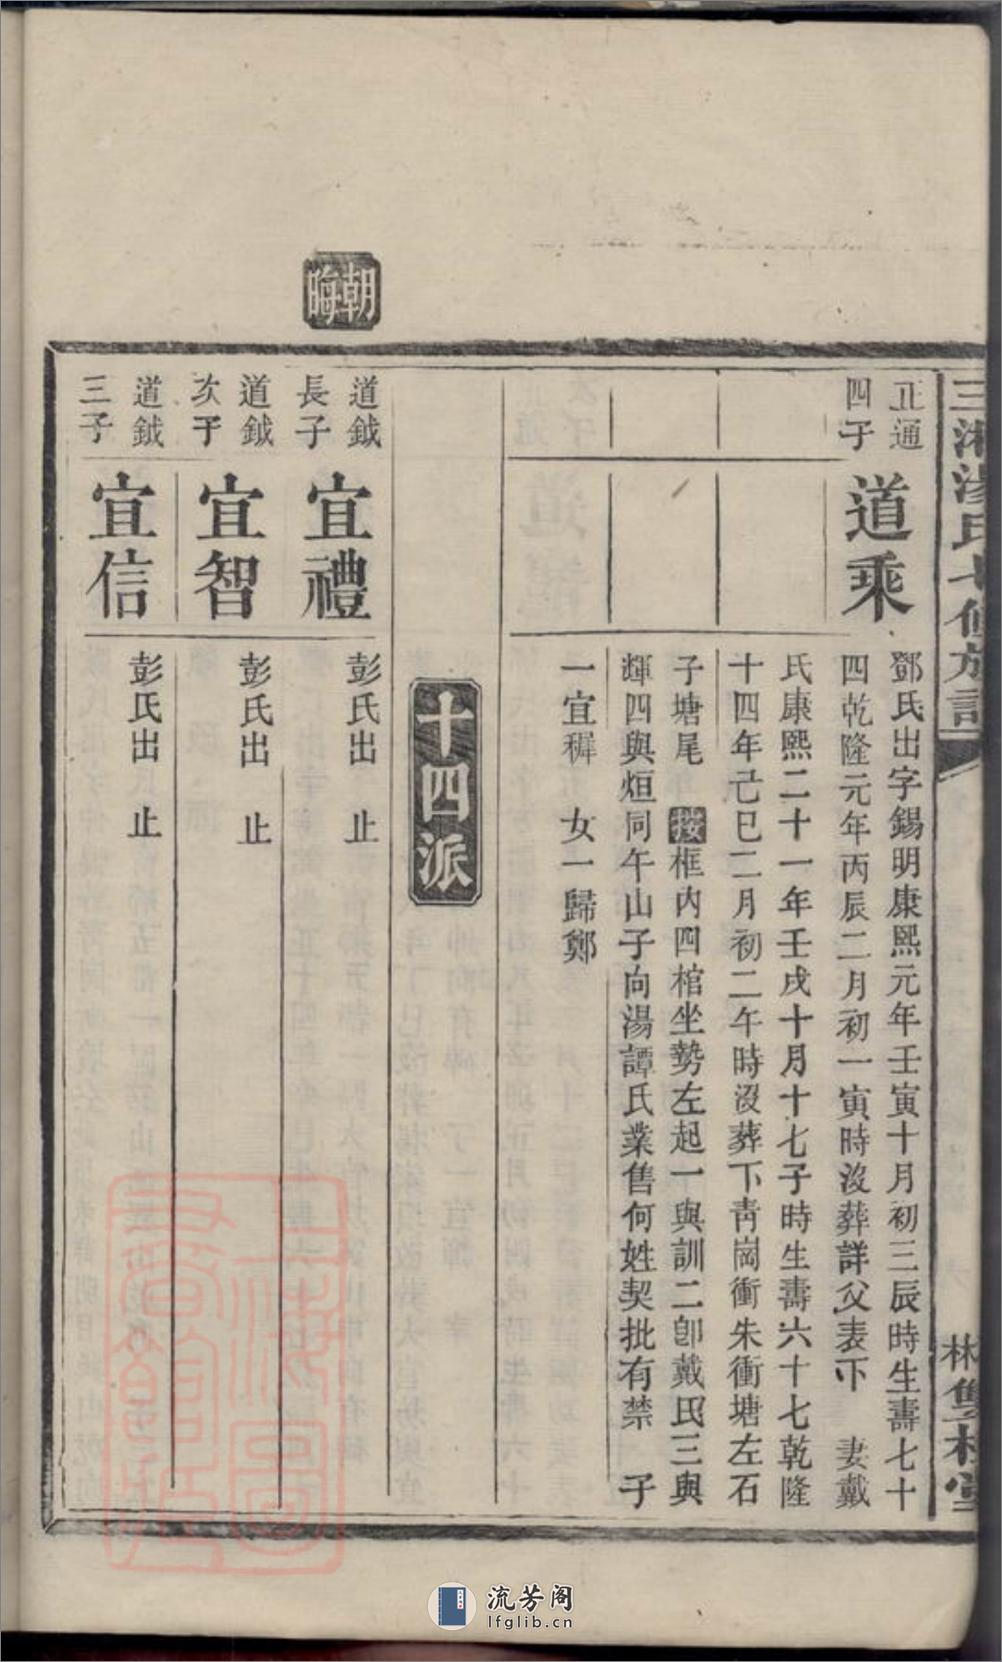 朝晦
三湘湯氏七修族譜
林隻桂堂
正通
四子
道乘
鄧氏出字錫明康熙元年壬寅十月初三辰時生壽七十
四乾隆元年丙辰二月初一寅時沒葬詳父表下　妻戴
氏康熙二十一年壬戌十月十七子時生壽六十七乾隆
十四年己巳二月初二午時沒葬下靑崗衝朱衝塘左石
子塘尾　按框内四棺坐勢左起一與訓二卽戴氏三與
輝四與烜同午山子向湯譚氏業售何姓契批有禁　子
一宜穉　女一歸鄭
十四派
道鉞
長子
宜禮
彭氏出　止
道鉞
次子
宜智
彭氏出　止
道鉞
三子
宜信
彭氏出　止
流芳阁
lfglib.cn